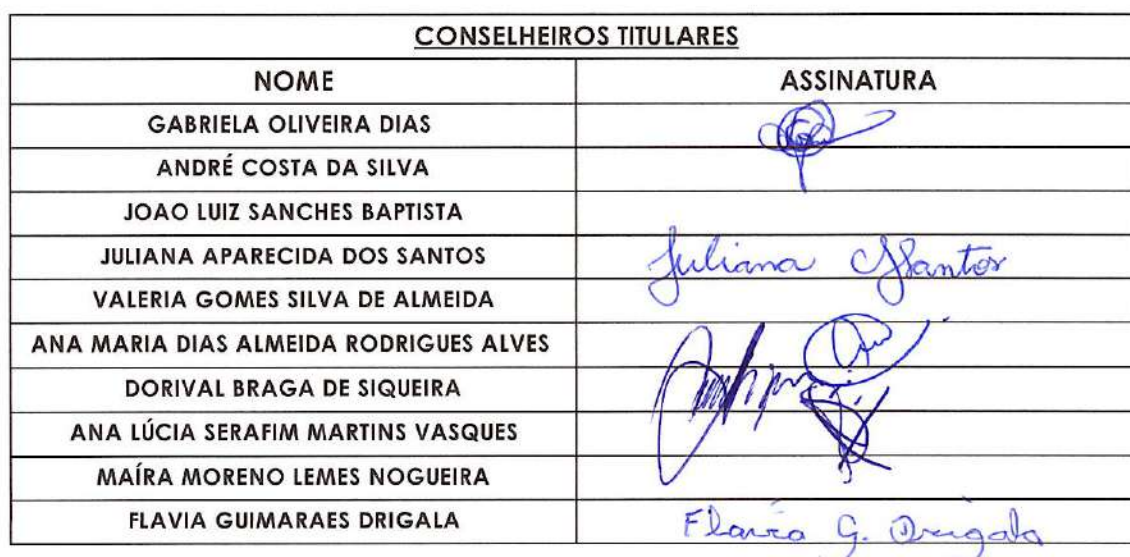 CONSELHEIROS TITULARES
NOME ASSINATURA
GABRIELA OLIVEIRA DIAS
ANDRÉ COSTA DA SILVA
JOAO LUIZ SANCHES BAPTISTA
JULIANA APARECIDA DOS SANTOS Juliana Santos
VALERIA GOMES SILVA DE ALMEIDA
ANA MARIA DIAS ALMEIDA RODRIGUES ALVES
DORIVAL BRAGA DE SIQUEIRA
ANA LÚCIA SERAFIM MARTINS VASQUES
MAÍRA MORENO LEMES NOGUEIRA
FLAVIA GUIMARAES DRIGALA Flavia G. Drigala